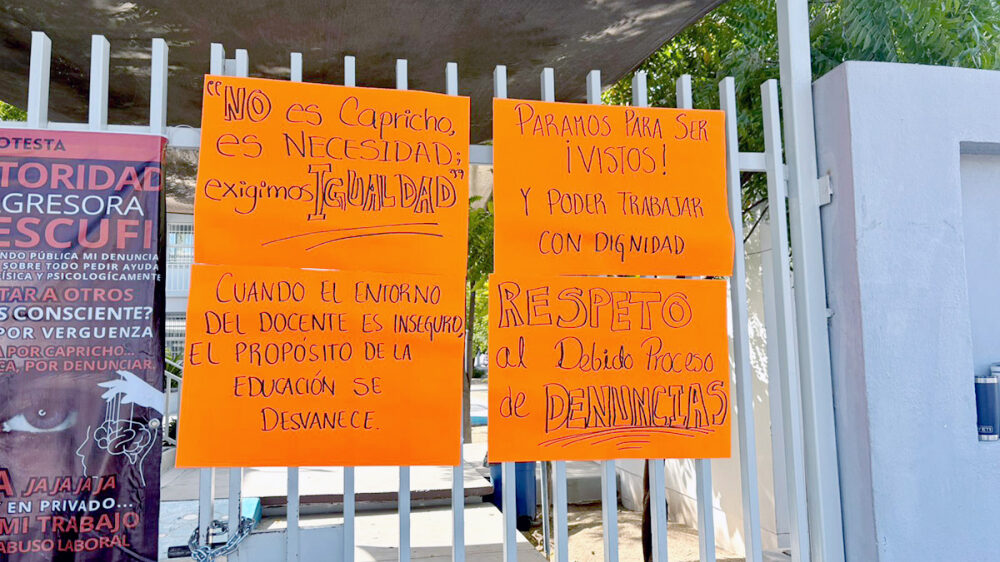 OTESTA
TORIDAD
GRESORA
ESCUFI
ANDO PÚBLICA MI DENUNCIA
SOBRE TODO PEDIR AYUDA
ÍSICA Y PSICOLÓGICAMENTE
TAR A OTROS
S CONSCIENTE?
POR VERGUENZA
A POR CAPRICHO...
CA, POR DENUNCIAR.
A JAJAJAJA
Y EN PRIVADO...
MI TRABAJO
ABUSO LABORAL
"NO es Capricho,
es NECESIDAD;
exigimos IGUALDAD"
PARAMOS PARA SER
¡VISTOS!
Y PODER TRABAJAR
CON DIGNIDAD
CUANDO EL ENTORNO
DEL DOCENTE ES INSEGURO,
EL PROPÓSITO DE LA
EDUCACIÓN SE
DESVANECE.
RESPETO
al Debido Proceso
de DENUNCIAS